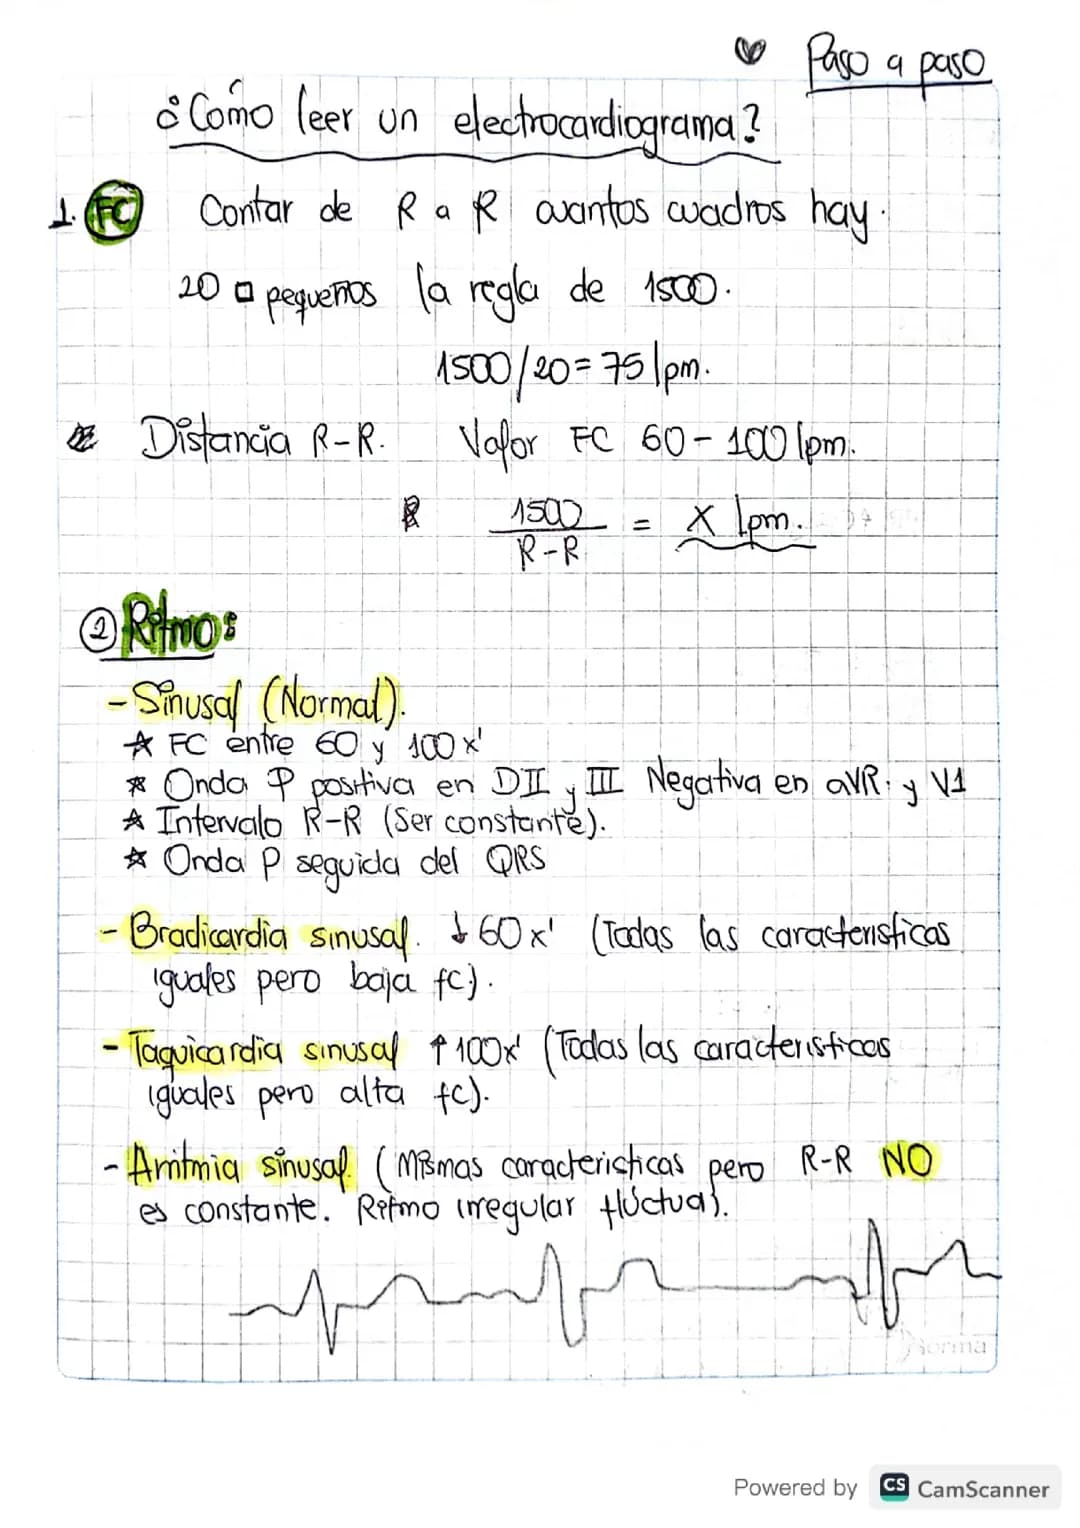 Paso a paso
¿Cómo leer un electrocardiograma?
1. FC Contar de R a R cuantos cuadros hay.
20 □ pequeños la regla de 1500.
1500/20 = 75 lpm.
Distancia R-R. Valor FC 60 - 100 lpm.
1500
R-R
= X lpm.
② Ritmo:
- Sinusal (Normal).
☆ FC entre 60 y 100 x'
☆ Onda P positiva en DII y III Negativa en aVR y V1
☆ Intervalo R-R (Ser constante).
☆ Onda P seguida del QRS
- Bradicardia sinusal. ↓60 x' (Todas las caracteristicas
iguales pero baja fc).
- Taquicardia sinusal ↑100x' (Todas las caracteristicas
iguales pero alta fc).
- Arritmia sinusal. (Mismas caracteristicas pero R-R NO
es constante. Ritmo irregular fluctua).
Norma
Powered by CS CamScanner